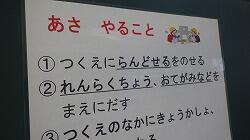 あさ やること
① つくえにらんどせるをのせる
② れんらくちょう、おてがみなどを
まえにだす
③ つくえのなかにきょうかしょ、